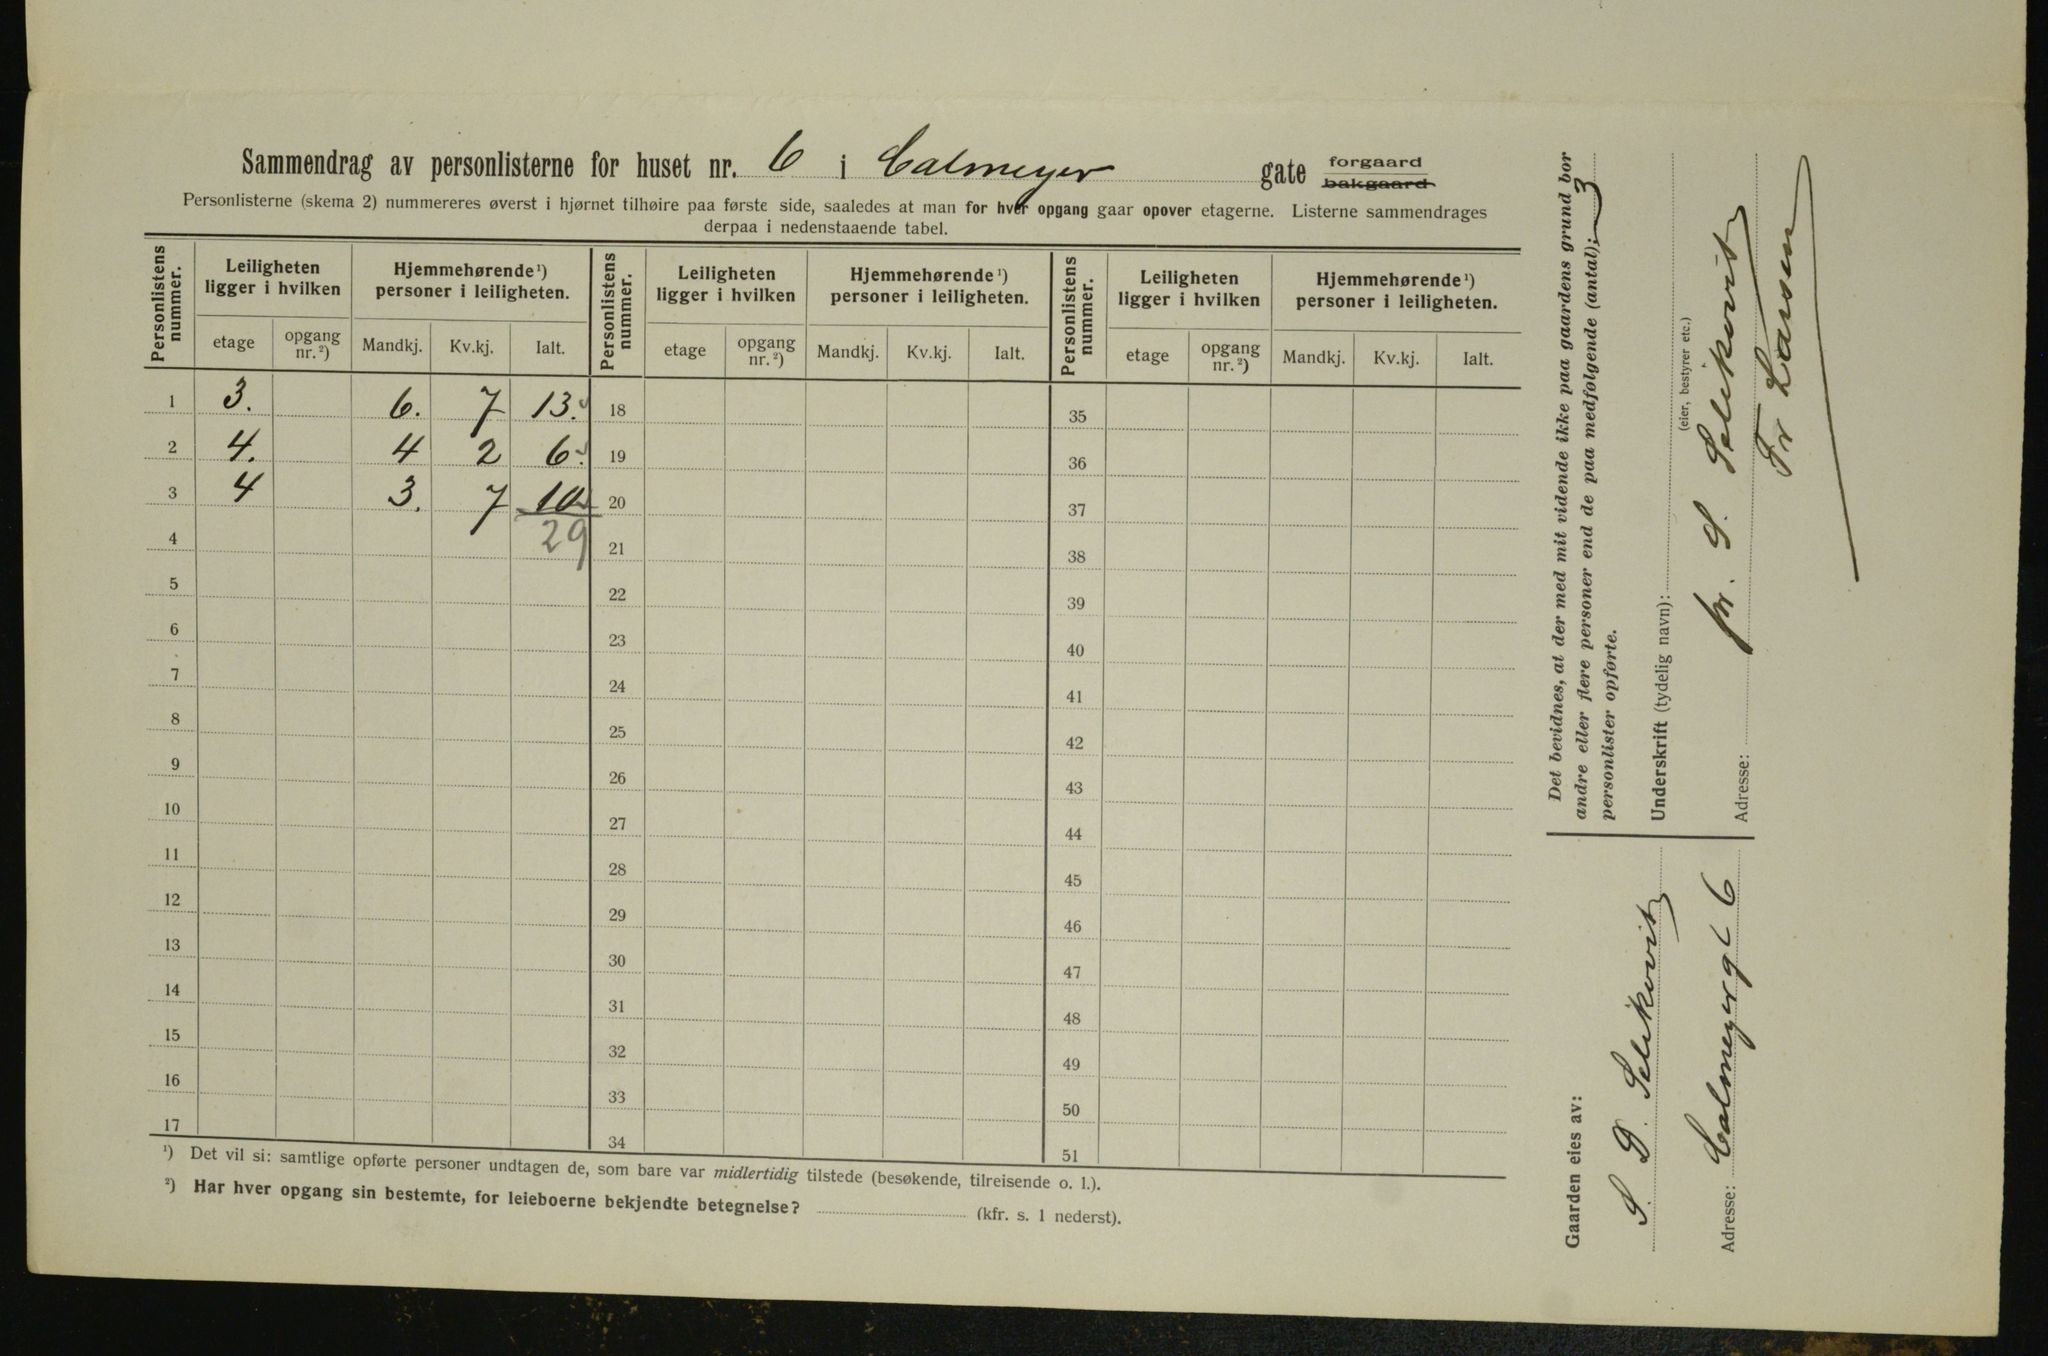 Sammendrag av personlisterne for huset nr. 6 i Calmeyer gate forgaard bakgaard
Personlisterne (skema 2) nummereres øverst i hjørnet tilhøire paa første side, saaledes at man for hver opgang gaar opover etagerne. Listerne sammendrages
derpaa i nedenstaaende tabel.
Personlistens nummer. Leiligheten ligger i hvilken Hjemmehørende ¹) personer i leiligheten. Personlistens nummer. Leiligheten ligger i hvilken Hjemmehørende ¹) personer i leiligheten. Personlistens nummer. Leiligheten ligger i hvilken Hjemmehørende ¹) personer i leiligheten.
etage opgang nr. ²) Mandkj. Kv.kj. Ialt. etage opgang nr. ²) Mandkj. Kv.kj. Ialt. etage opgang nr. ²) Mandkj. Kv.kj. Ialt.
1 3. 6. 7 13. 18 35
2 4. 4 2 6. 19 36
3 4 3. 7 10 20 37
4 29 21 38
5 22 39
6 23 40
7 24 41
8 25 42
9 26 43
10 27 44
11 28 45
12 29 46
13 30 47
14 31 48
15 32 49
16 33 50
17 34 51
¹) Det vil si: samtlige opførte personer undtagen de, som bare var midlertidig tilstede (besøkende, tilreisende o. l.).
²) Har hver opgang sin bestemte, for leieboerne bekjendte betegnelse? (kfr. s. 1 nederst).
Det bevidnes, at der med mit vidende ikke paa gaardens grund bor
andre eller flere personer end de paa medfolgende (antal): 3
personlister opførte.
Underskrift (tydelig navn):
(eier, bestyrer etc.)
pr. S. Selikovitz
Adresse:
Fr Larsen
Gaarden eies av:
S. D. Selikovitz
Adresse: Calmeyergt 6